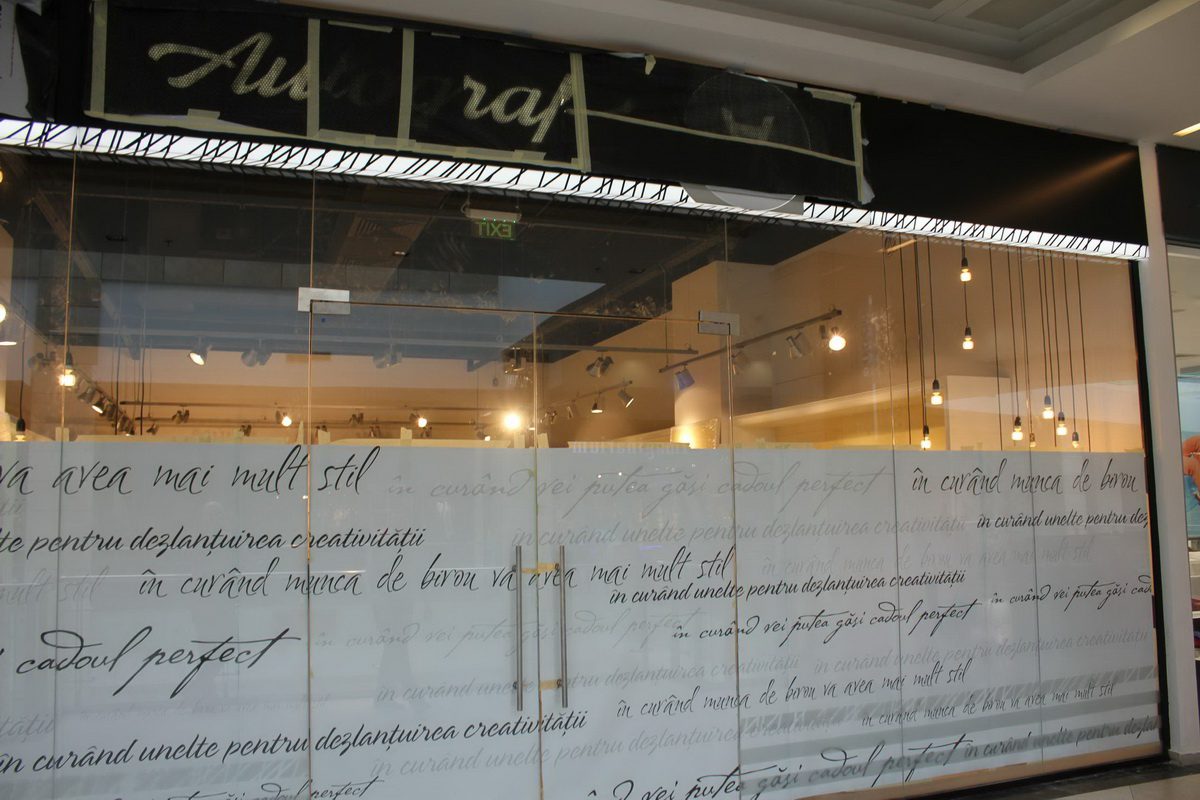 Autograf
EXIT
va avea mai mult stil
în curând vei putea găsi cadoul perfect
în curând munca de birou
te pentru dezlanțuirea creativității
în curând unelte pentru dezlanțuirea creativității
în curând unelte pentru dez
mult stil
în curând munca de birou va avea mai mult stil
în curând munca de birou va avea mai mult stil
în curând unelte pentru dezlanțuirea creativității
în curând vei putea găsi cad
cadoul perfect
în curând vei putea găsi cadoul perfect
în curând vei putea găsi cadoul perfect
în curând unelte pentru dezlanțuirea creativității
în curând unelte pentru dezlanțuirea creativității
în curând munca de birou va avea mai mult stil
în curând munca de birou va avea mai mult stil
în curând unelte pentru dezlanțuirea creativității
în curând unelte pentru dezlanțuirea creativității
vei putea găsi cadoul perfect
în curând unelte pentru
găsi cadoul perfect